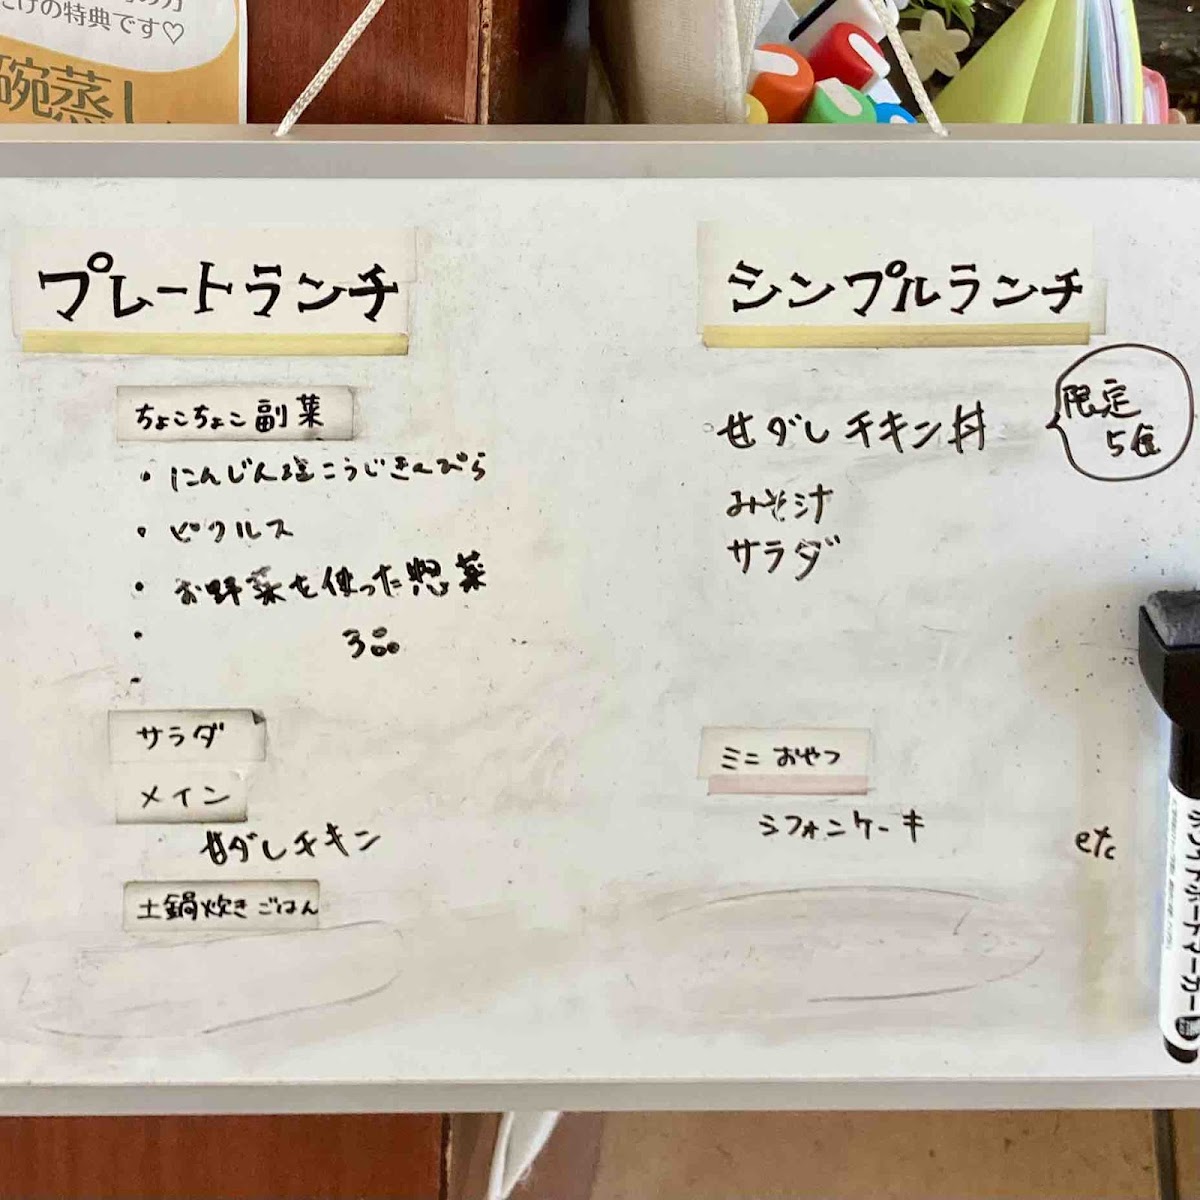 けの特典です♡
碗蒸し
プレートランチ
ちょこちょこ副菜
・にんじん塩こうじきんぴら
・ピクルス
・お野菜を使った惣菜
・ 3品
・
サラダ
メイン
甘ダレチキン
土鍋炊きごはん
シンプルランチ
甘ダレチキン丼
限定
5食
みそ汁
サラダ
ミニおやつ
シフォンケーキ
etc